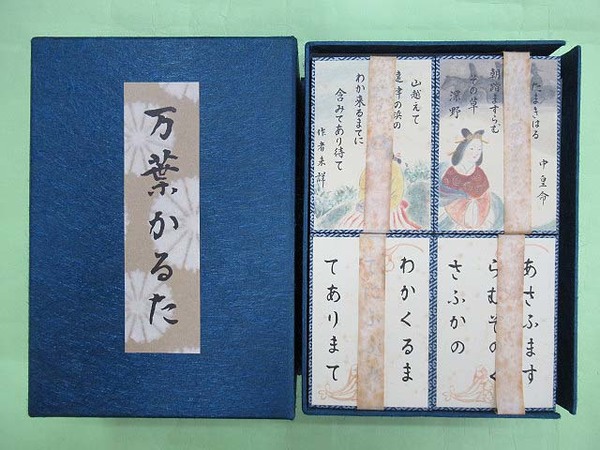 万葉かるた
たまきはる
中皇命
朝踏ますらむ
その草
深野
山越えて
遠津の浜の
わか来るまてに
含みてあり待て
作者未詳
あさふます
らむそのく
さふかの
わかくるま
てありまて